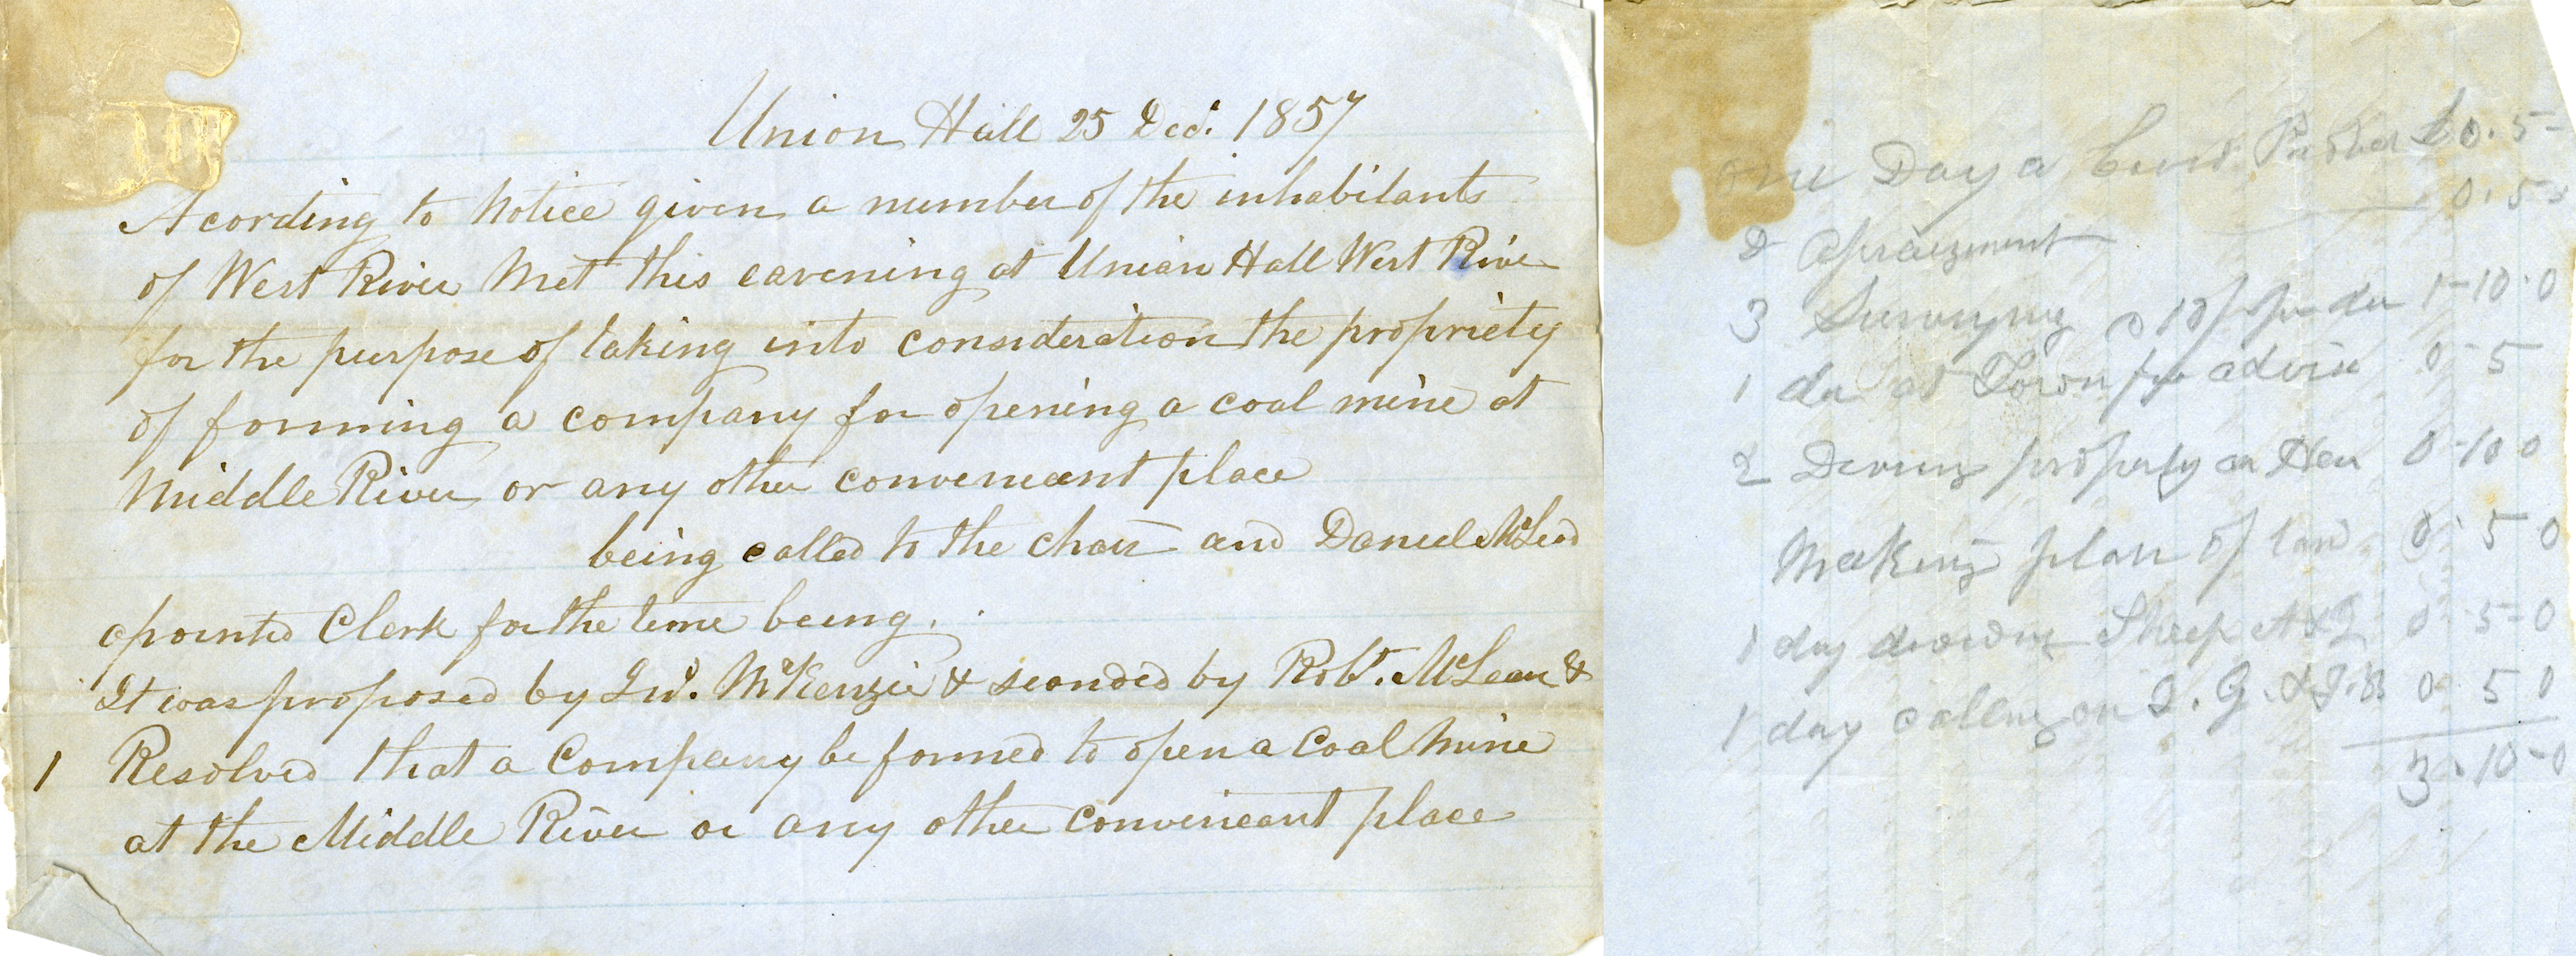 Union Hall 25 Decr. 1857
Acording to Notice given a number of the inhabitants
of West River Met this eavening at Union Hall West River
for the purpose of taking into consideration the propriety
of forming a company for opening a coal mine at
Middle River or any other conveneant place
being called to the chair and Daniel McLeod
apointed Clerk for the time being.
It was proposed by Jno. McKenzie & seconded by Robt. McLean &
1 Resolved that a Company be formed to open a Coal Mine
at the Middle River or any other conveneant place
one Day a £0.5-
2 Apraizment 0.5-
3 Surveying @ 10/ per da 1-10-0
1 da at Town for advice 0-5
2 property 0-10 0
Making plan of lan 0-5 0
1 day Sheep 0-5-0
1 day calling on J. G. & J. 0 5 0
3-10-0